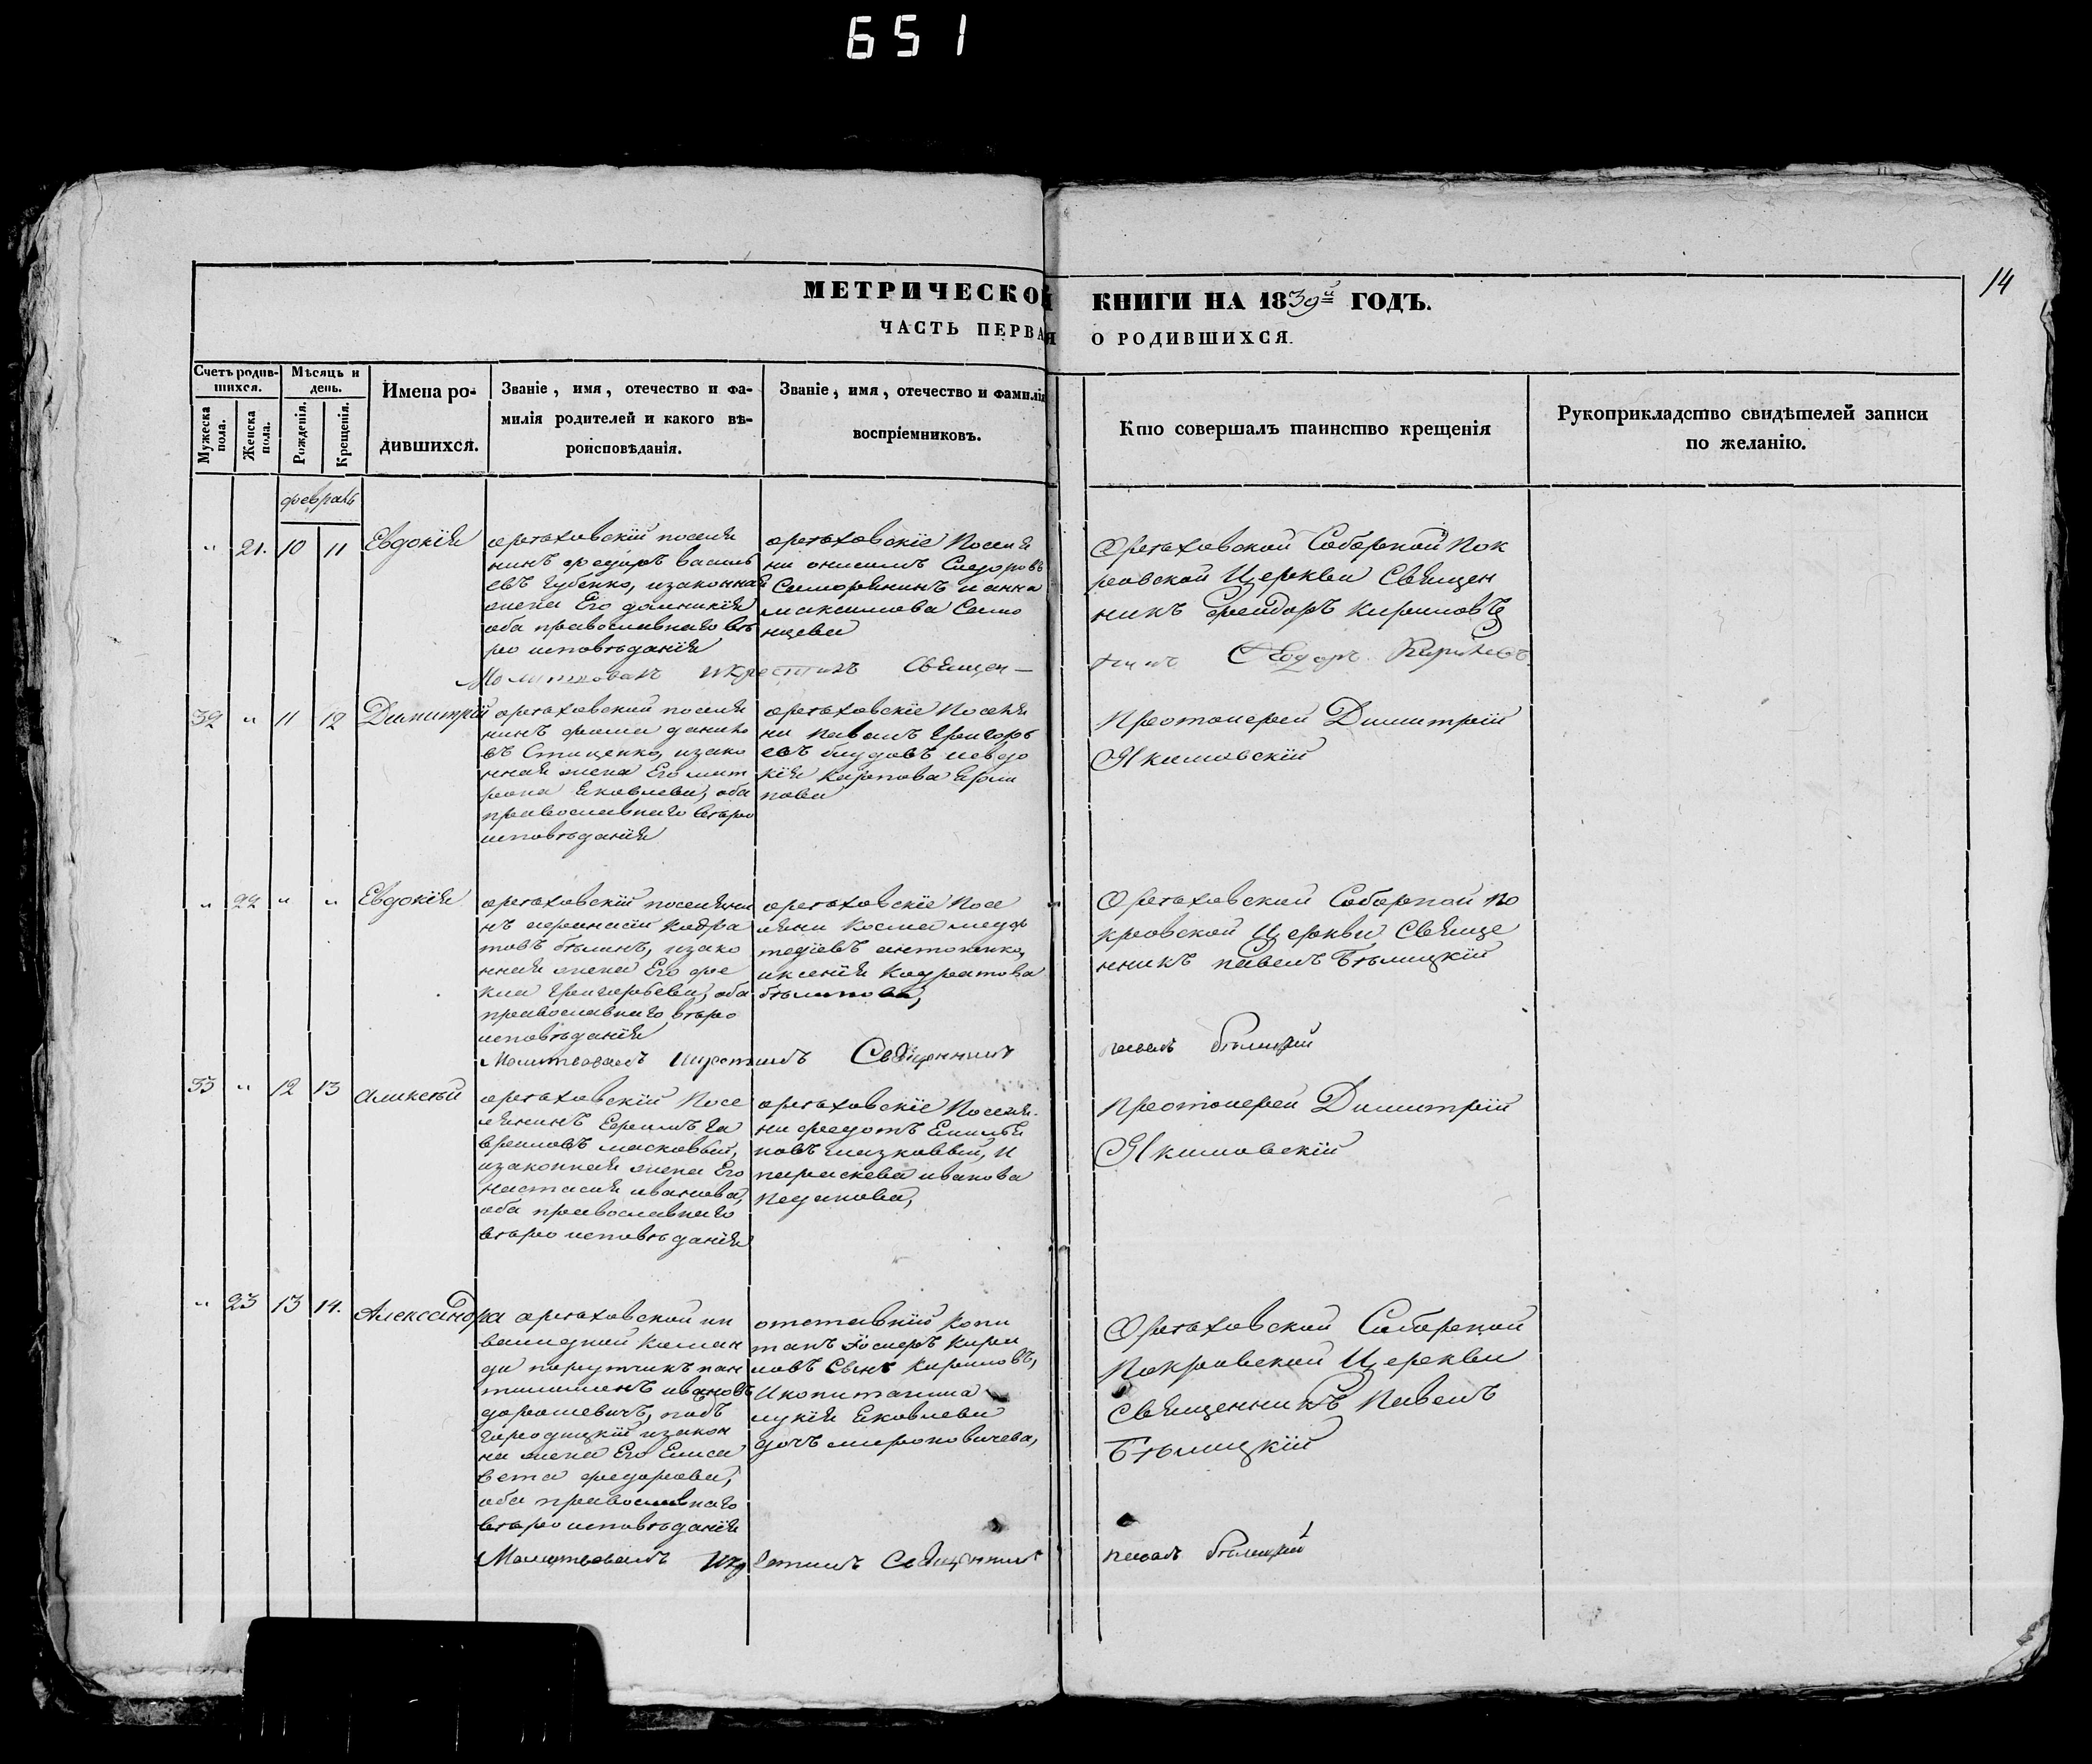 651
14
МЕТРИЧЕСКОЙ КНИГИ НА 1839й ГОДЪ.
ЧАСТЬ ПЕРВАЯ О РОДИВШИХСЯ.
Счетъ родив-
шихся.
Мужеска
пола.
Женска
пола.
Мѣсяць и
день.
Рожденія.
Крещенія.
Имена ро-
дившихся.
Званіе, имя, отечество и фа-
милія родителей и какого вѣ-
роисповѣданія.
Званіе, имя, отечество и фамилія
воспріемниковъ.
Кто совершалъ таинство крещенія
Рукоприкладство свидѣтелей записи
по желанію.
февраль
" 21. 10 11 Евдокія
орѣховскій поселя
нинъ федоръ василь
евъ Губенко, изаконная
жена Его домникія
оба православнаго вѣ
ро исповѣданія
орѣховскіе Поселя
ни онисимъ Сидоровъ
и анна
максимова
Орѣховской Соборной Пок
ровской Церкви Священ
никъ феидоръ Кириловъ
Молитвовалъ икрестилъ Священ—
никъ Феодоръ Кириловъ
32 " 11 12 Димитрій
орѣховский поселя
нинъ фома данило
въ Стаценко, изако
нная жена Его мат
рона Яковлева, оба
православнаго вѣро
исповѣданія
орѣховскіе Поселя
ни павелъ Григорь
евъ блудовъ иевдо
кія Карпова
Протоиерей Димитрій
Якимовскій
" 22 " " Евдокія
орѣховскій поселяни
нъ афанасій Кодра
товъ бѣлинъ, изако
нная жена Его фе
кла Григорьева, оба
православнаго вѣро
исповѣданія
орѣховскіе Посе
ляни Косма меф
тодіевъ антоненко,
иксенія Кодратова
бѣлинова,
Орѣховской Соборной по
кровской Церкви Священ
нникъ павелъ Бѣлицкій
Молитвовалъ икрестилъ Священникъ
павелъ бѣлицкій
33 " 12 13 аликсѣй
орѣховскій Посе
лянинъ Ефимъ Га
вриловъ масковый,
изаконная жена Его
настасия иванова,
оба православнаго
вѣро исповѣданія
орѣховскіе Поселя-
ни федотъ Емилья
новъ глазковый, И
параскева иванова
Педанова,
Протоиерей Димитрій
Якимовскій
" 23 13 14. Александра
орѣховской ин
валидной Коман
ды порутчикъ пан
тилимонъ ивановъ
дорошевичъ, подъ
городицкій изакон
на жена Его Елиса
вета федорова,
оба православнаго
вѣро исповѣданія
отставній Капи
танъ Кири
ловъ Сынъ Кириловъ,
Икапитанша
лукія Яковлева
дочъ мироновичева,
Орѣховской Соборной
Покровской Церкви
священникъ Павелъ
Бѣлицкій
Молитвовалъ Икрестилъ Священникъ
павелъ бѣлицкій